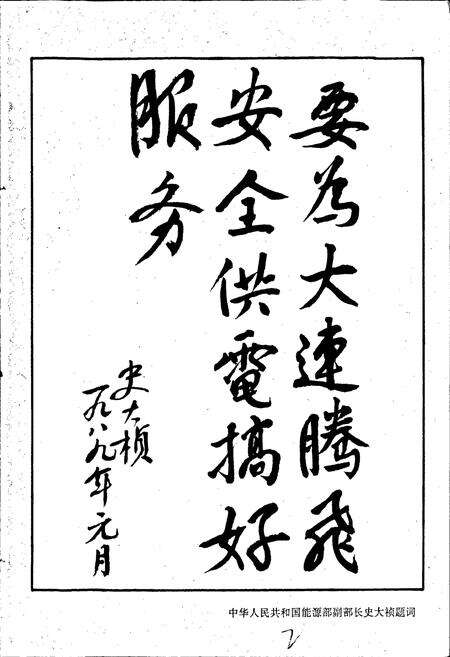 要為大連騰飛
安全供電搞好
服务
史大桢
一九八九年元月
中华人民共和国能源部副部长史大祯题词
2